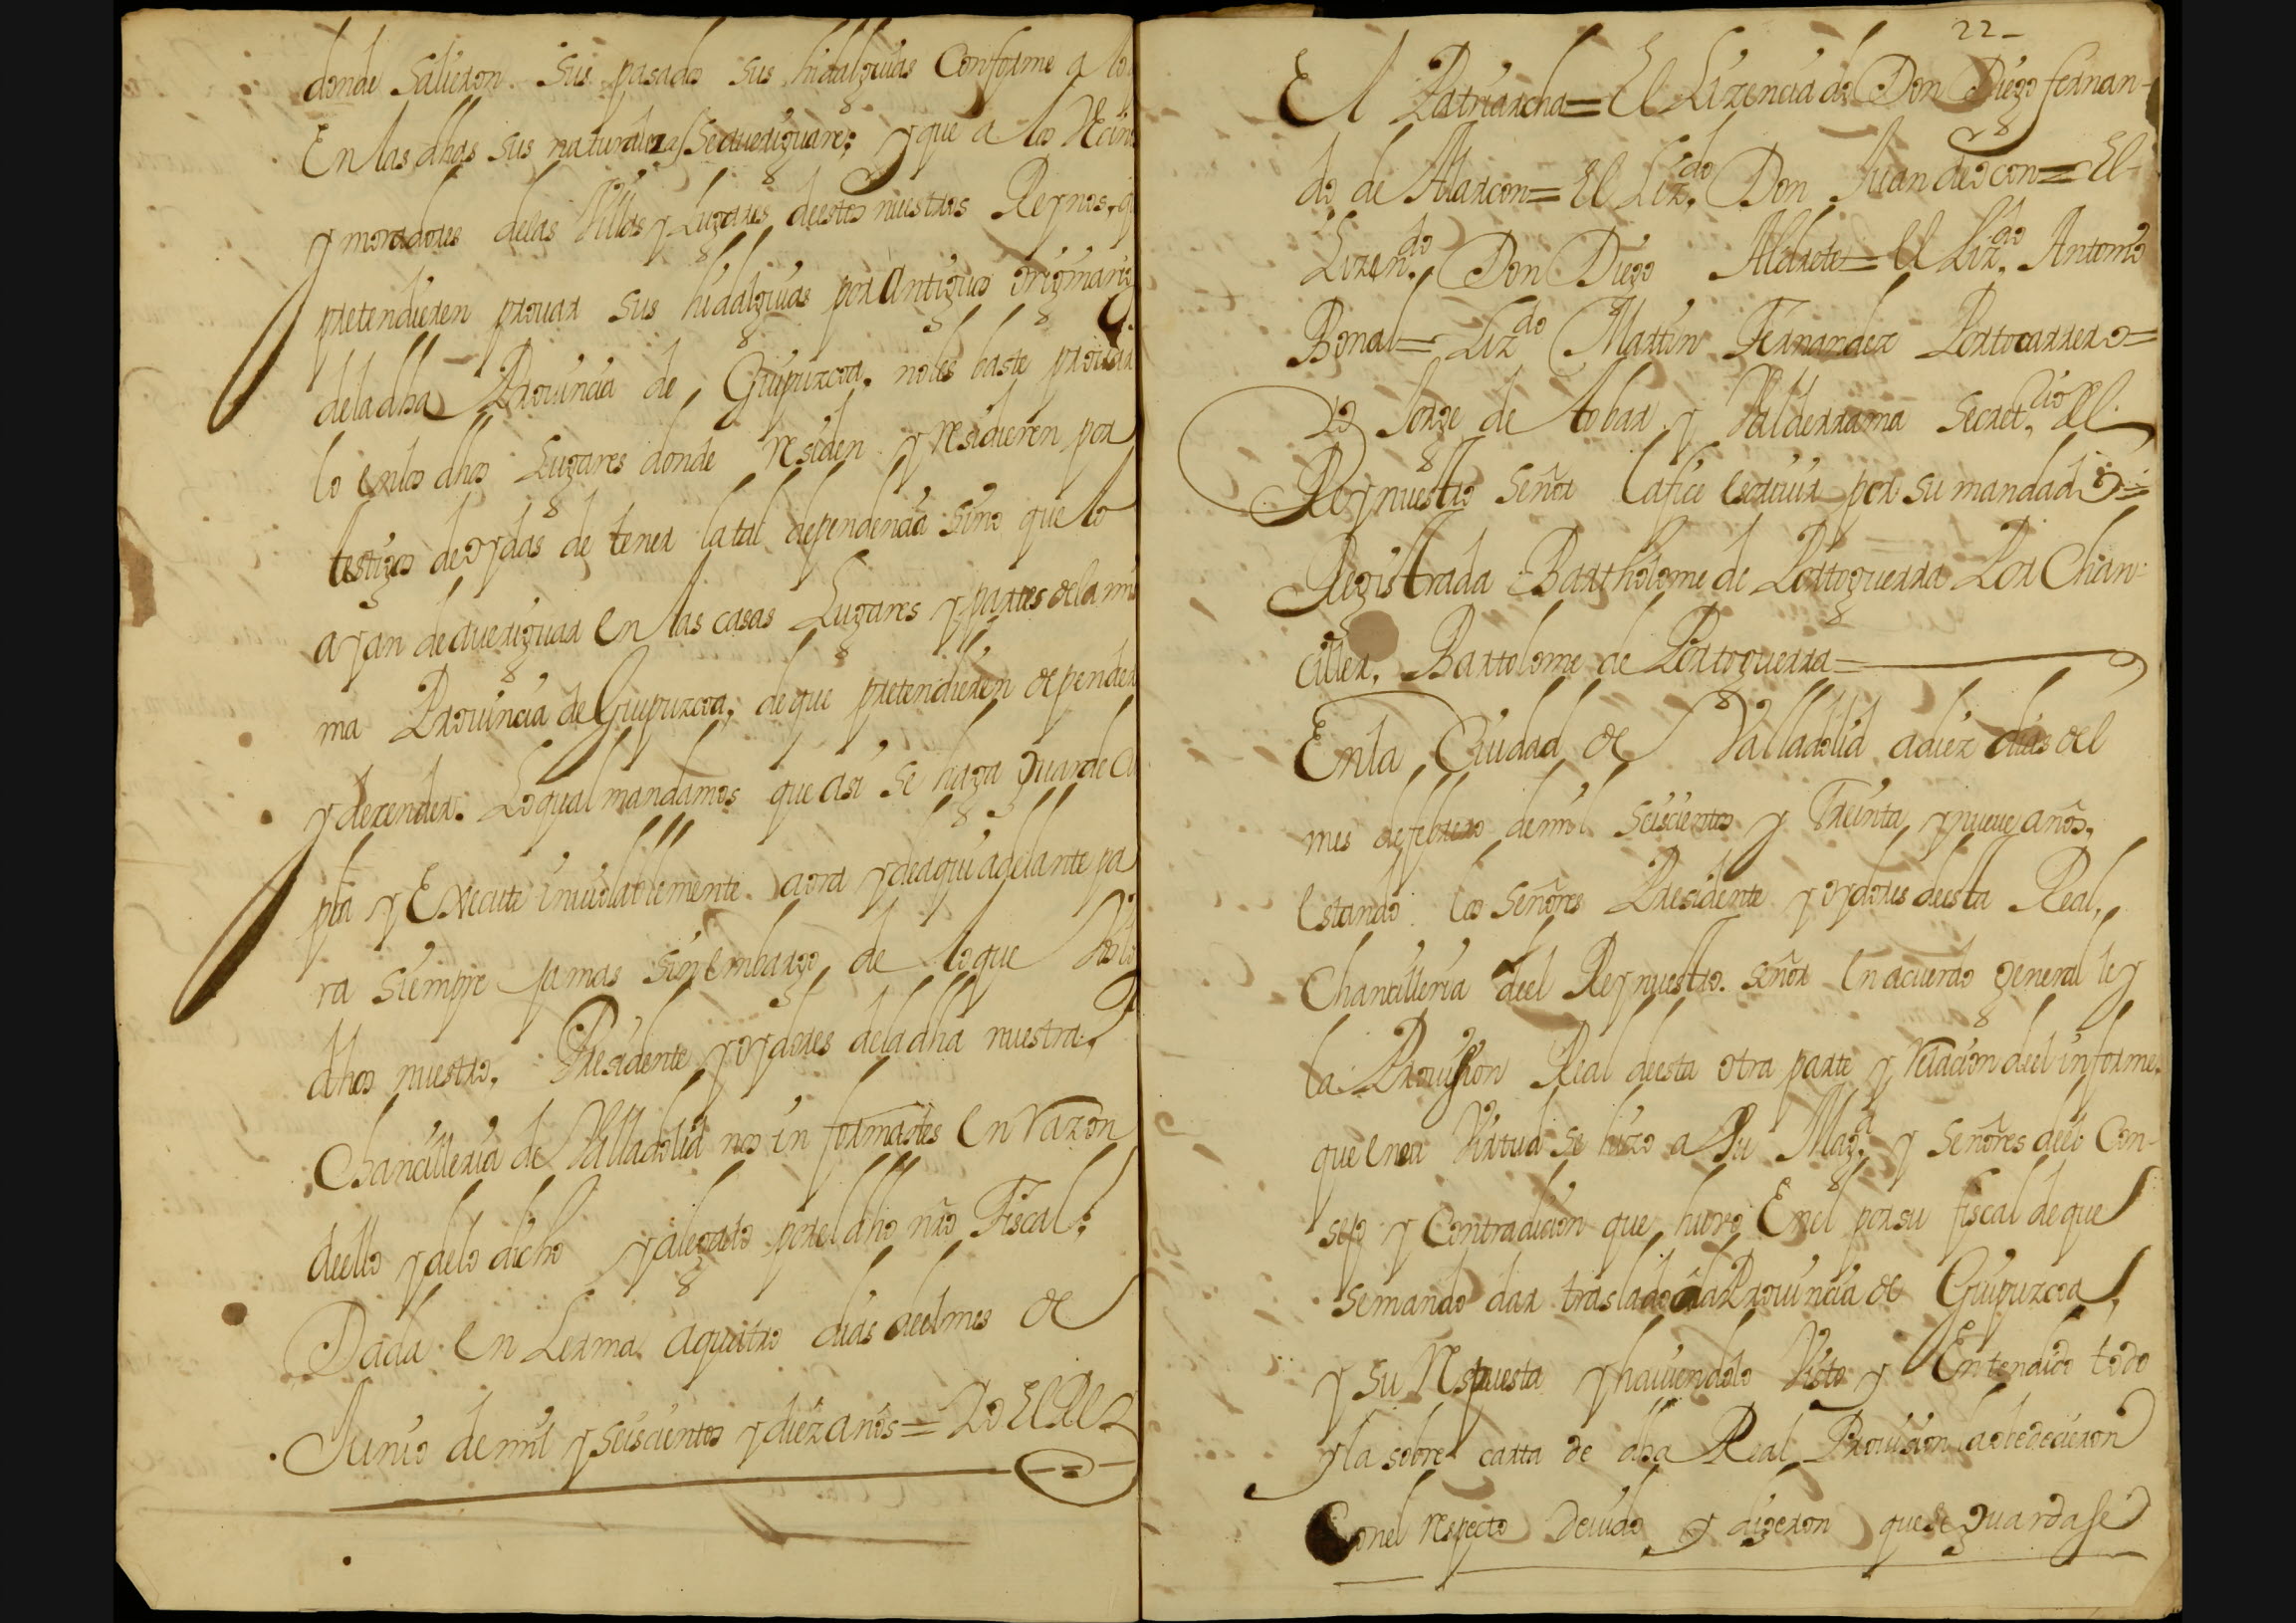 donde Salieron. Sus pasados sus hidalguias Conforme a lo
En las dhas sus naturalezas Seaueriguare; y que a los Vecin
y moradores delas Villas y Lugares deestos nuestros Reynos, q
pretendieren prouar sus hidalguias por Antiguos originario
deladha Prouincia de Guipuzcoa, noles baste prouar
lo enlos dhos Lugares donde residen y residieren por
testigos de oydas de tener la tal dependencia sino que lo
ayan deaueriguar en las casas Lugares y partes dela mis
ma Prouincia de Guipuzcoa, de que pretendieren depender
y decender. Loqual mandamos que asi se haga guarde Cu
pla y Execute inuiolablemente aora y deaqui adelante pa
ra siempre jamas sin embargo de loque
dhos nuestro, Presidente y oydores deladha nuestra
Chancilleria de Valladolid nos in formastes en razon
deello y delo dicho y alegado porel dho nro Fiscal;
Dada en Lerma aquatro dias deelmes de
Junio demil y seiscientos y diez años = Yo El Rey
22
El Patriarcha = El Lizenciado Don Diego fernan-
do de Alarcon = El Lizdo, Don Juan deocon = El
Lizendo, Don Diego Alderete = El Lizdo, Antonio
Bonal = Lizdo Martin Fernandez Portocarrero =
Yo Jorge de tobar y Valderrama Secretrio del
Rey nuestro Señor lafice escriuir por su mandado =
Registrada Bartholome de Portoguerra Por Chan-
ciller, Bartolome de Portoguerra =
Enla Ciudad de Valladolid adiez dias del
mes defebrero demil Seiscientos y Treinta y nueue años,
estando los Señores Presidente y oydores deesta Real,
Chancilleria deel Rey nuestro señor en acuerdo general ley
la Prouission Real deesta otra parte y relacion deel informe
que enea Virtud se hizo a Su Magd y Señores deel Con-
sejo y Contradicion que huvo Enel porsu fiscal deque
semando dar traslado ala Prouincia de Guipuzcoa,
y su respuesta y hauiendolo Visto y Entendido todo
y la sobre carta de dha Real Prouision laobedecieron
Conel respecto deuido y digeron quese guardase